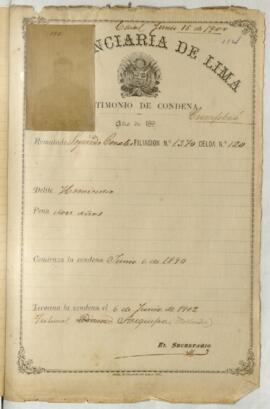 Junio 15 de 1904
NCIARIA DE LIMA
TIMONIO DE CONDENA
Año de 189
Cumplió
Rematado FILIACION N.° 1370 CELDA N.° 120
Delito Homicidio
Pena doce años
Comienza la condena Junio 6 de 1890
Termina la condena el 6 de Junio de 1902
Tribunal Arequipa
EL SECRETARIO